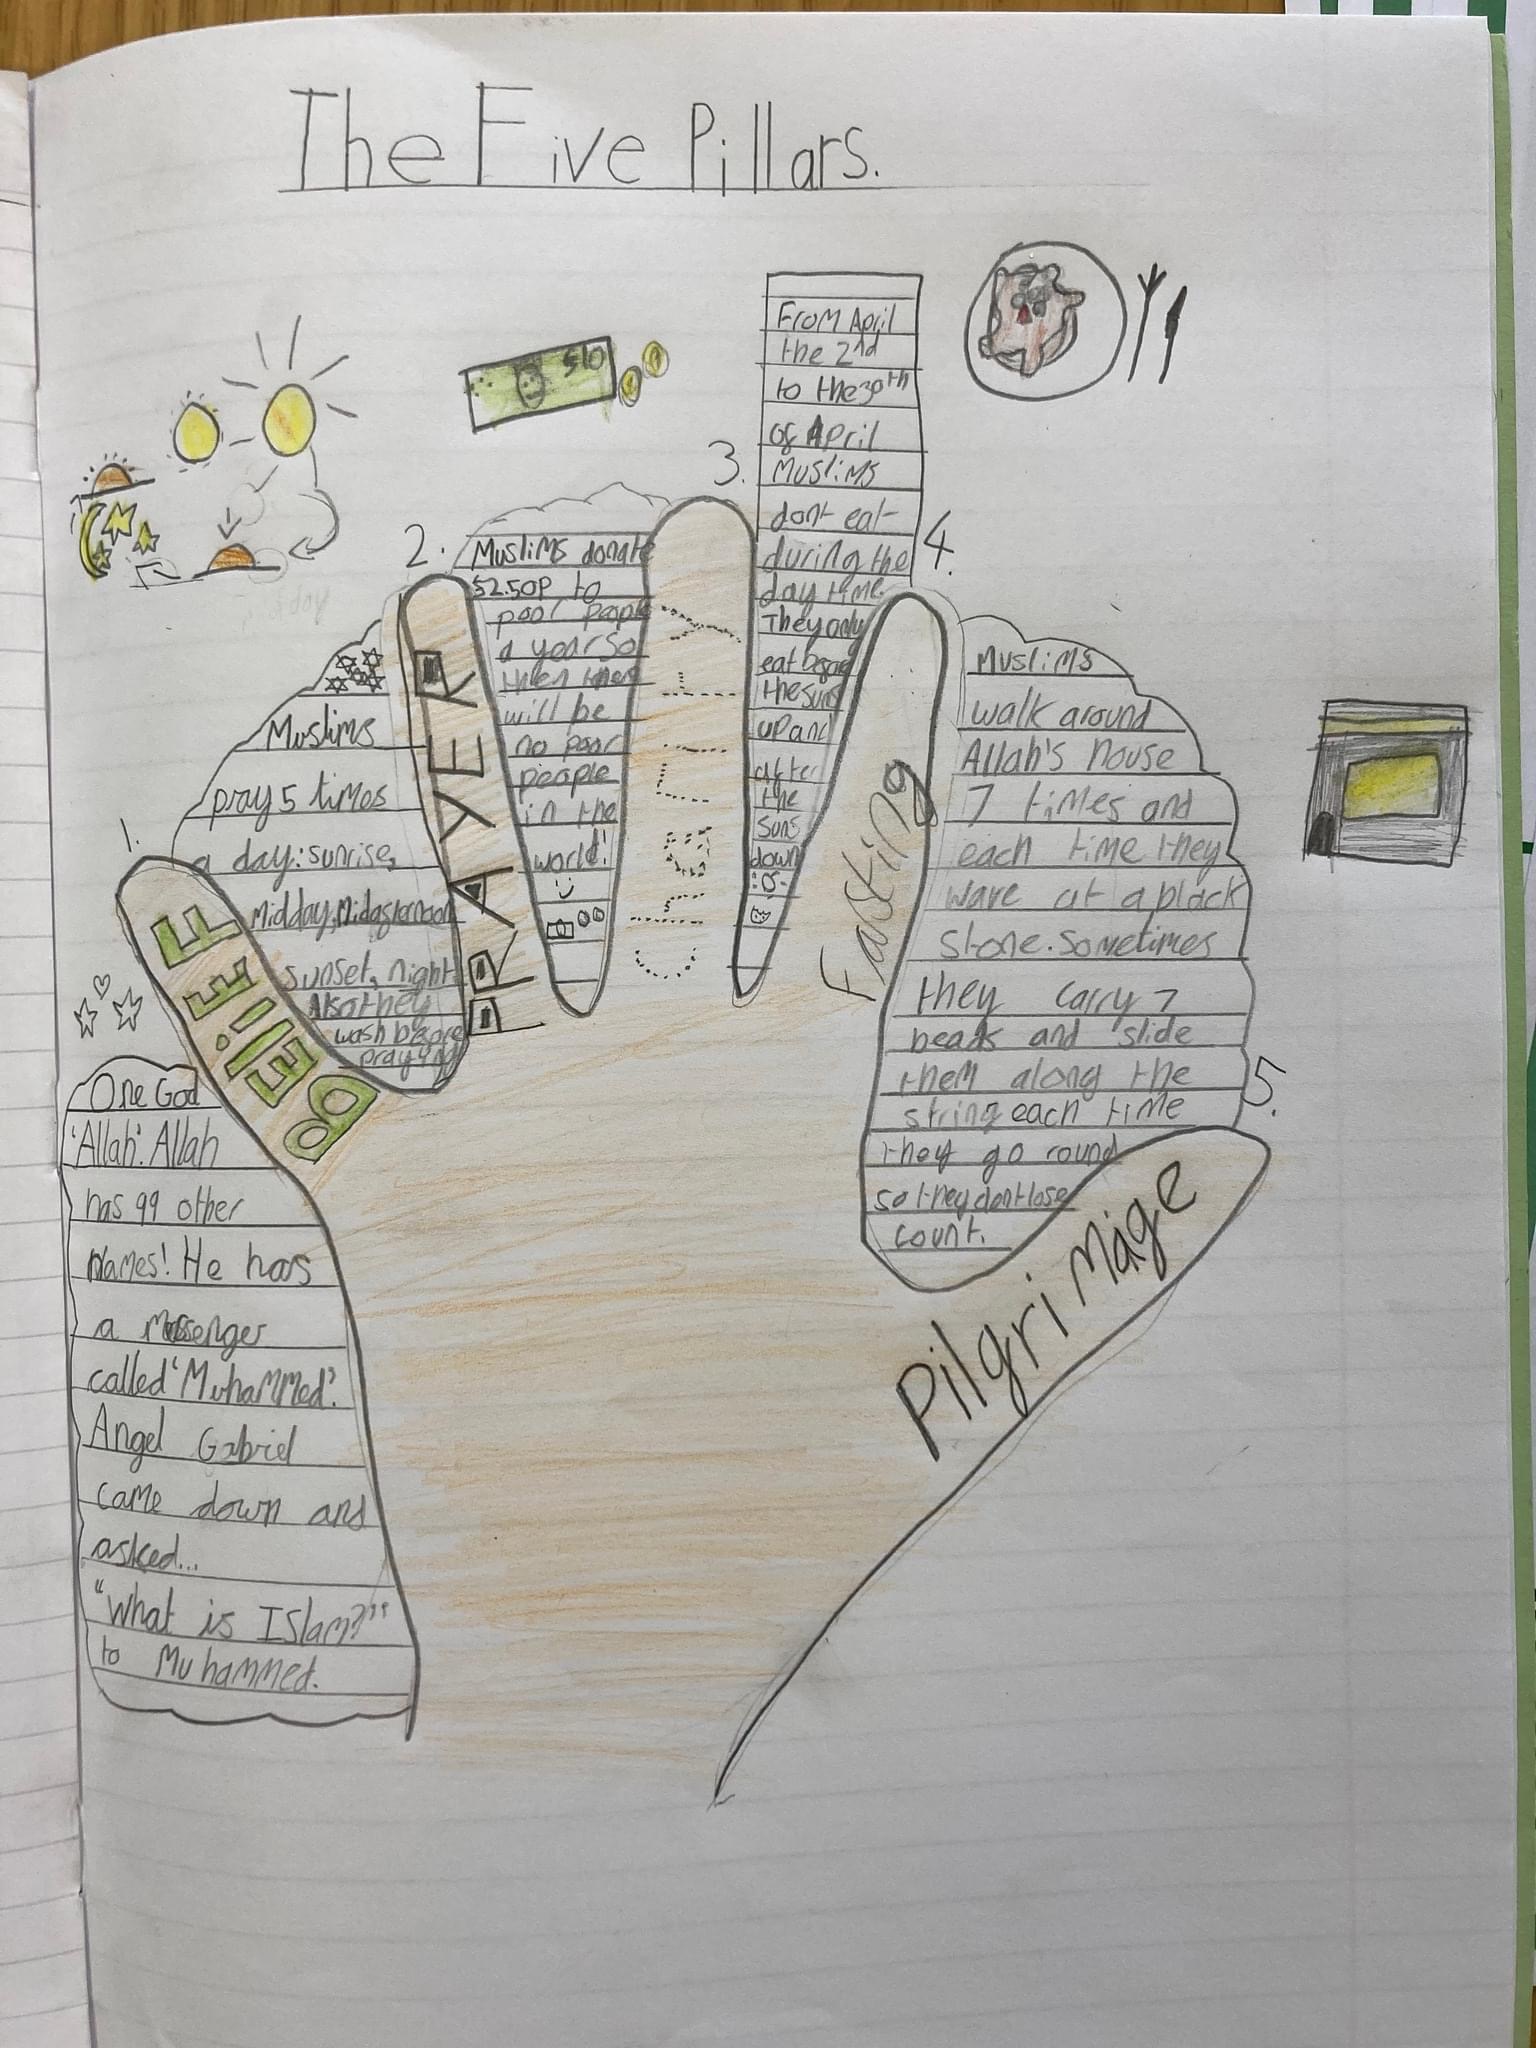 The Five Pillars.
1.
BEliEF
One God
'Allah'. Allah
has 99 other
names! He has
a messenger
called 'Muhammed'.
Angel Gabriel
came down and
asked...
"What is Islam?"
to Muhammed.
2.
PRAYER
Muslims
pray 5 times
a day: sunrise,
midday, midafternoon
sunset, night
Also they
wash before
praying
3.
CHARITY
$10
Muslims donate
$2.50p to
poor people
a year so
then there
will be
no poor
people
in the
world!
4.
Fasting
From April
the 2nd
to the 30th
of April
Muslims
dont eat
during the
day time.
They only
eat before
the suns
up and
after
the
suns
down
5.
Pilgrimage
Muslims
walk around
Allah's house
7 times and
each time they
wave at a black
stone. Sometimes
they carry 7
beads and slide
them along the
string each time
they go round
so they dont lose
count.